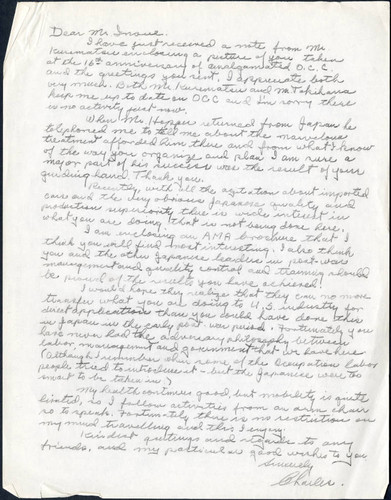 Dear Mr Inoue.
I have just received a note from Mr
Kurematsu enclosing a picture of you taken
at the 16th anniversary of amalgamated O.C.C.
and the greetings you sent. I appreciate both
very much. Both Mr Kurematsu and Mr Tokihara
keep me up to date on OCC and I'm sorry there
is no activity just now.
When Mr Hopper returned from Japan he
telephoned me to tell me about the marvelous
treatment afforded him there and from what I know
of the way you organize and plan I am sure a
major part of his success was the result of your
guiding hand. Thank you.
Recently, with all the agitation about imported
cars and the very obvious Japanese quality and
production superiority there is wide interest in
what you are doing that is not being done here.
I am enclosing an AMA brochure that I
think you will find most interesting. I also think
you and the other Japanese leaders in post-war
management and quality control and training should
be proud of the results you have achieved!
I would hope they realize that they can no more
transfer what you are doing to U.S. industry for
direct application than you could have done this
in Japan in the early post war period. Fortunately you
have never had the adversary philosophy between
labor, management and government that we have here
(Although I remember when some of the Occupation labor
people tried to introduce it - but the Japanese were too
smart to be taken in.)
My health continues good, but mobility is quite
limited, so I follow activities from an arm chair
so to speak. Fortunately there is no restriction on
my mind travelling and this I enjoy.
Kindest greetings and regards to any
friends, and my particular good wishes to you
Sincerely
Charles.